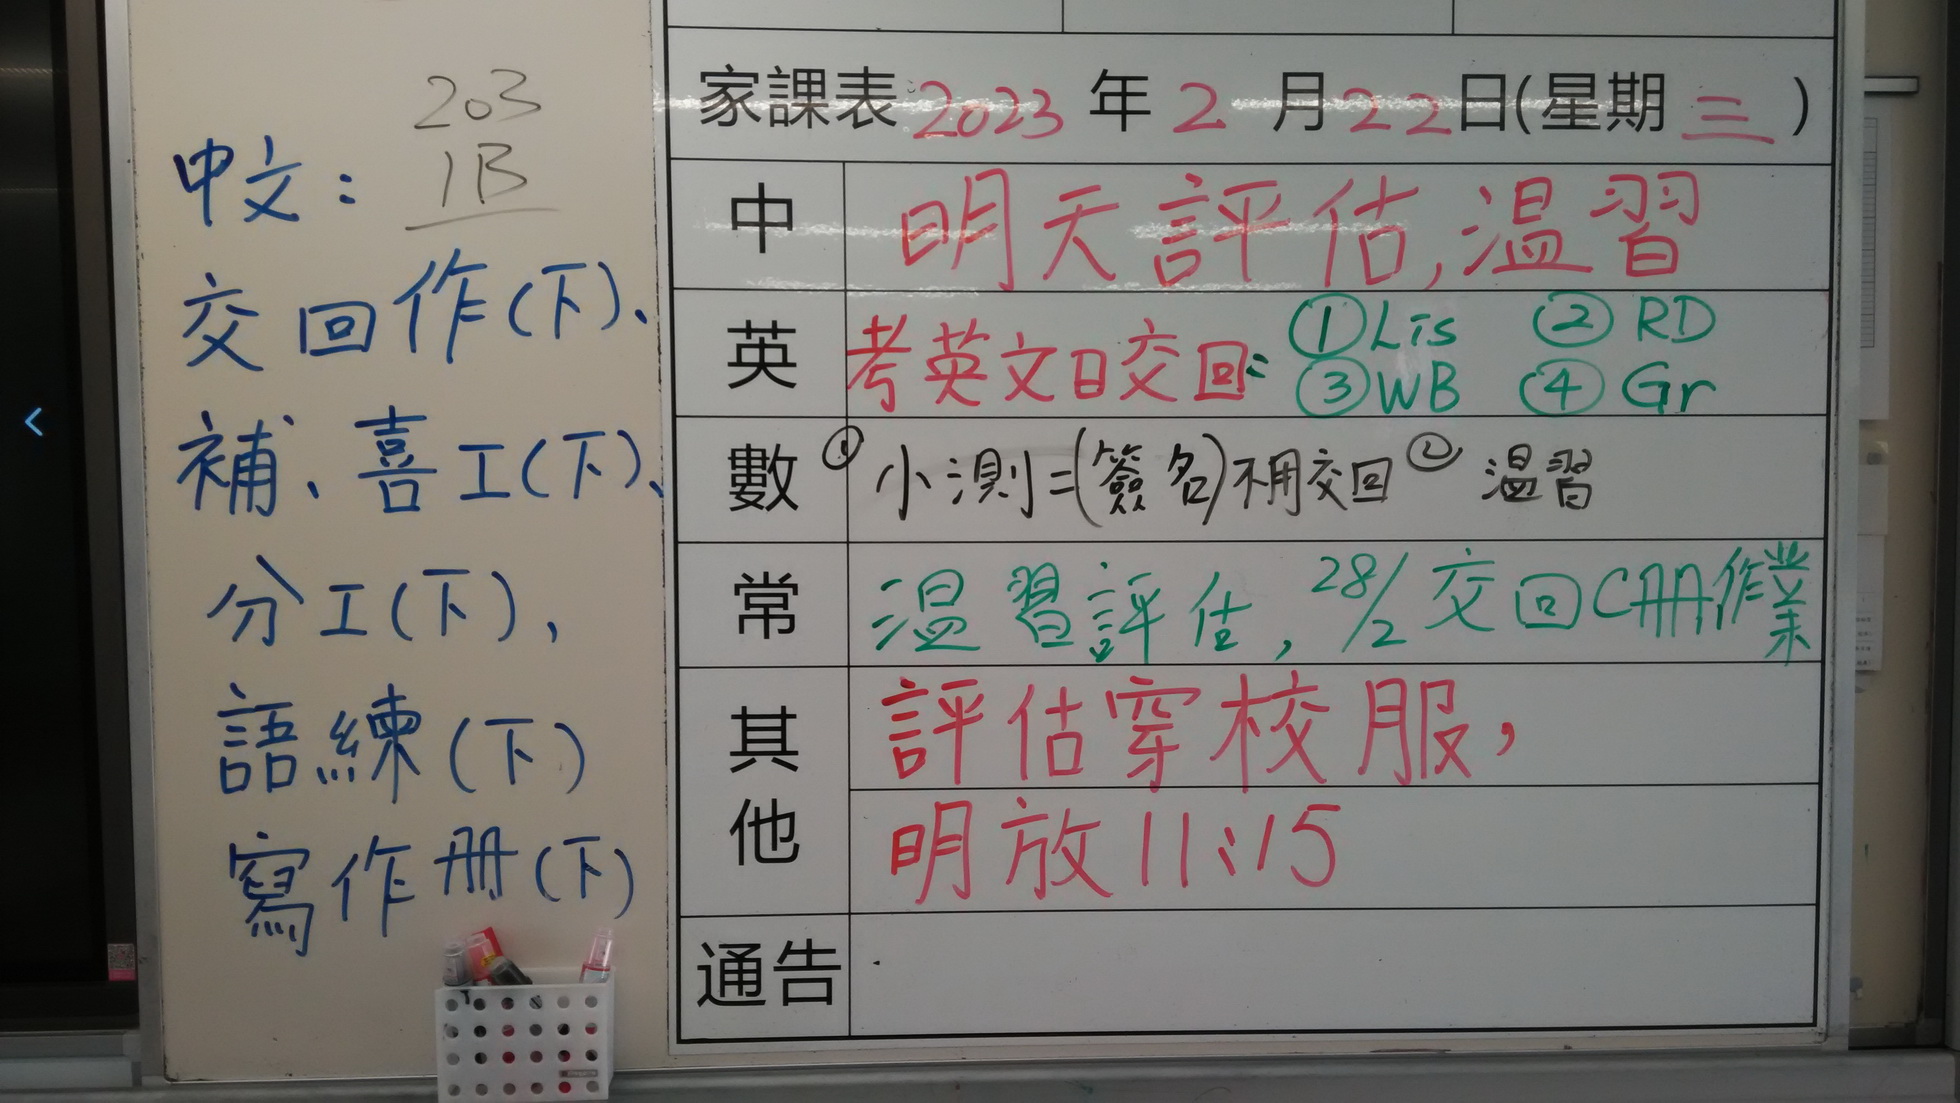 203
1B
中文：
交回作(下)、
補、喜工(下)、
分工(下)，
語練(下)
寫作册(下)
家課表 2023 年 2 月 22 日(星期 三 )
中 明天評估,溫習
英 考英文日交回: ①Lis ②RD
③WB ④Gr
數 ①小測二(簽名)不用交回 ②溫習
常 溫習評估, 28/2 交回C冊作業
其他 評估穿校服，
明放11:15
通告